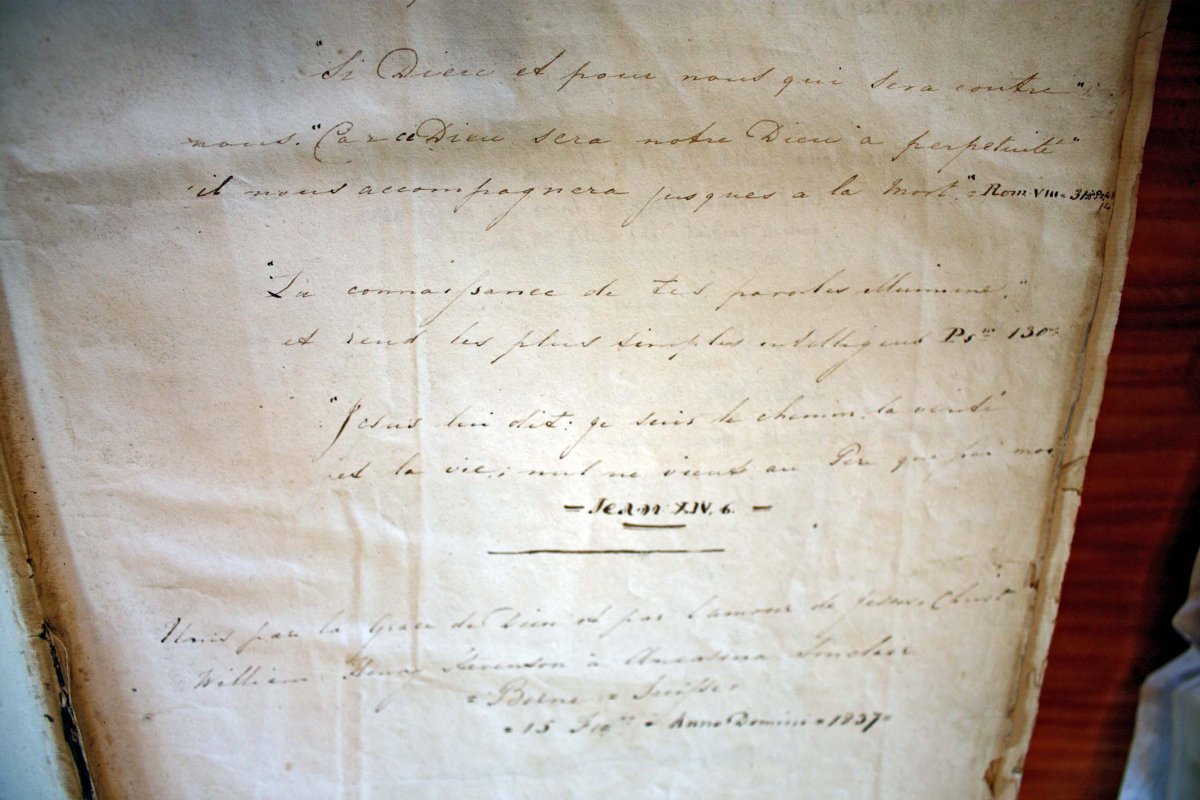 "Si Dieu et pour nous qui sera contre"
nous." Car ce Dieu sera notre Dieu à perpetuité"
il nous accompagnera jusques a la Mort." = Rom. VIII = 31
"La connaissance de tes paroles illumine,"
et rend les plus simples intelligens Ps
"Jesus lui dit: je suis le chemin, la verité
et la vie; nul ne vient au Père que par moi
= Jean XIV. 6. =
Unis par la Grace de Dieu et par l'amour de Jesus Christ
William Henry à
= Berne = Suisse
= 15 = Anno Domini = 1837=